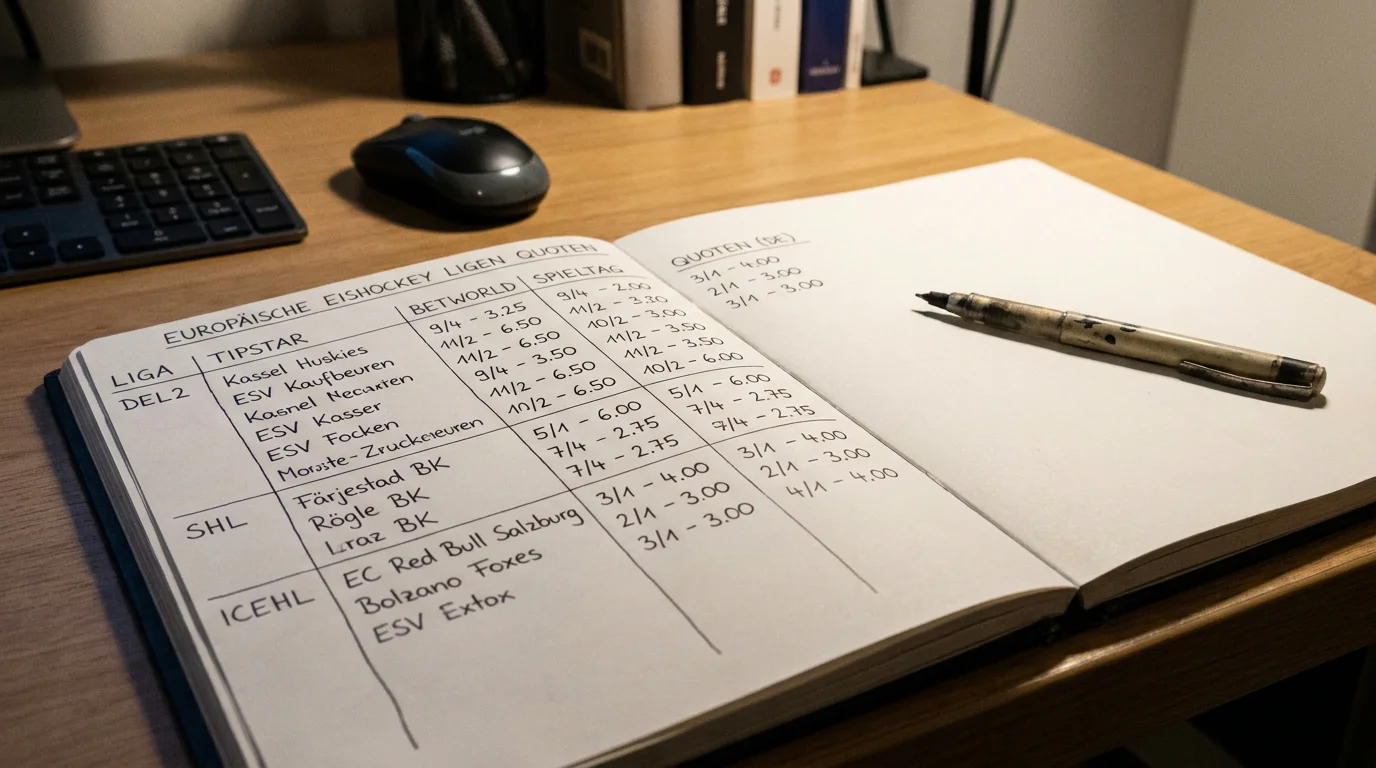 EUROPÄISCHE EISHOCKEY LIGEN QUOTEN
LIGA TIPSTAR BETWORLD SPIELTAG
DEL2 Kassel Huskies 9/4 – 3.25 9/4 – 2.00
ESV Kaufbeuren 11/2 – 6.50 11/2 – 3.80
Kasnel 11/2 – 6.50 10/2 – 3.00
ESV Kasser 9/4 – 3.50 11/2 – 3.50
ESV Focken 11/2 – 6.50 11/2 – 3.50
10/2 – 6.50 10/2 – 6.00
SHL Färjestad BK 5/1 – 6.00 5/1 – 6.00
Rögle BK 7/4 – 2.75 7/4 – 2.75
BK 7/4 – 2.75 7/4 – 2.75
ICEHL EC Red Bull Salzburg 3/1 – 4.00 3/1 – 4.00
Bolzano Foxes 2/1 – 3.00 2/1 – 3.00
ESV Extox 3/1 – 3.00 4/1 – 4.00
QUOTEN (DE)
3/1 – 4.00
2/1 – 3.00
3/1 – 3.00